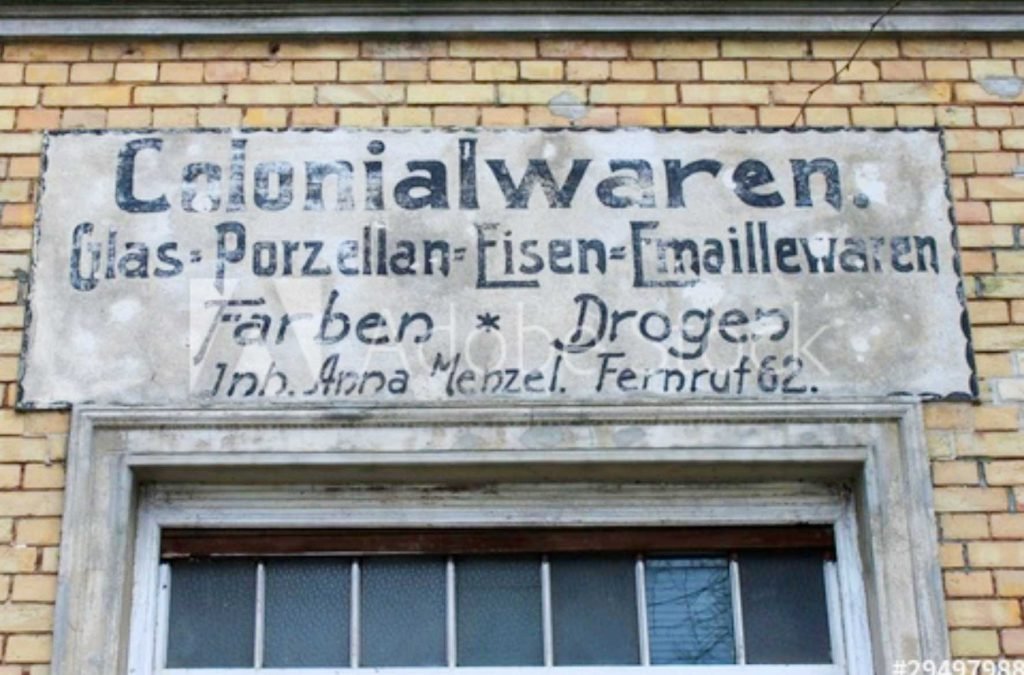 Colonialwaren.
Glas=Porzellan=Eisen=Emaillewaren
Farben * Drogen
Inh. Anna Menzel. Fernruf 62.
Adobe Stock
#29497988